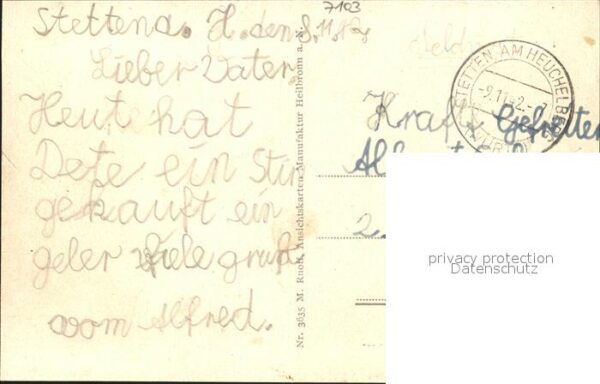 7103
Stettena. H. den 8.11.42
Lieber Vater
Heute hat
Dete ein Stir
gekauft ein
geler viele gruß
vom Alfred.
Nr. 3635 M. Ruoff, Ansichtskarten-Manufaktur Heilbronn a. N.
Feld
STETTEN AM HEUCHELBERG
-9.11.42.-
Kraft Gefreiter
2.
privacy protection
Datenschutz